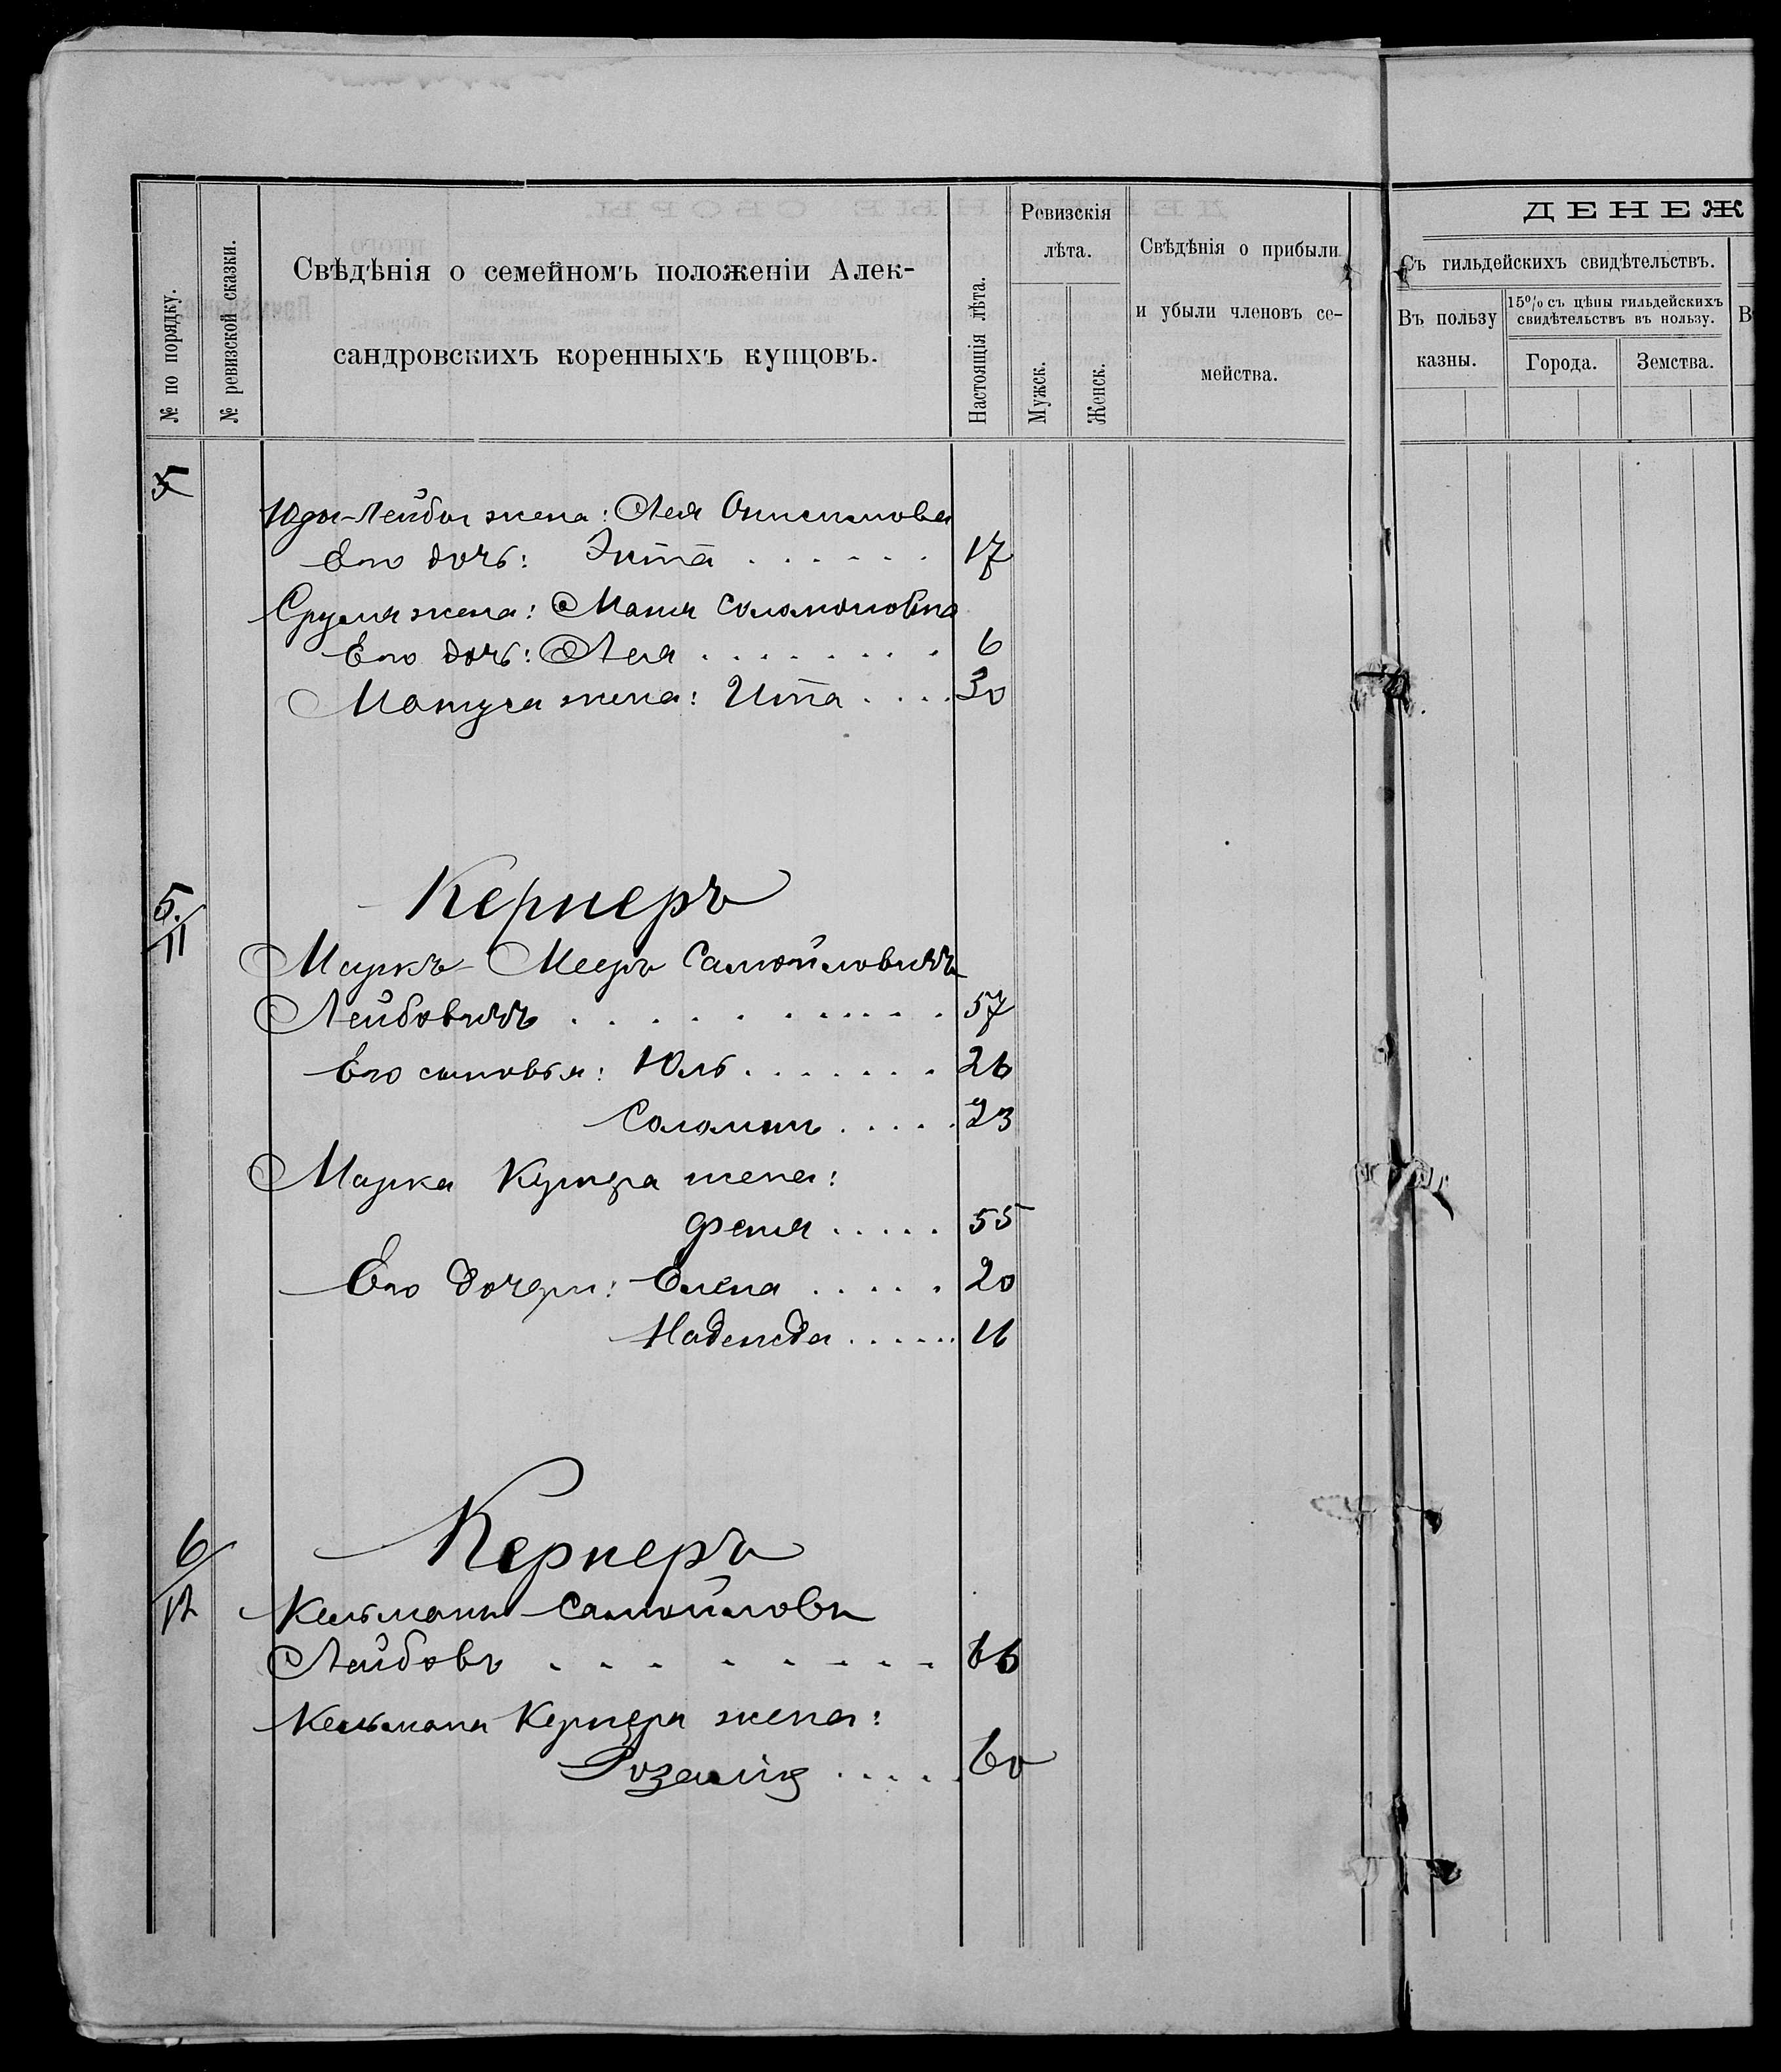 № по порядку.
№ ревизской сказки.
Свѣдѣнія о семейномъ положеніи Алек-
сандровскихъ коренныхъ купцовъ.
Настоящія лѣта.
Ревизскія
лѣта.
Мужск.
Женск.
Свѣдѣнія о прибыли
и убыли членовъ се-
мейства.
ДЕНЕЖ
Съ гильдейскихъ свидѣтельствъ.
Въ пользу
казны.
15% съ цѣны гильдейскихъ
свидѣтельствъ въ пользу.
Города.
Земства.
В
5
Юды-Лейбы жена: Лея Онисимова
Его дочь: Энта . . . . . . 17
Сруля жена: Маня Соломоновна
Его дочь: Лея . . . . . . . . 6
жена: Ита . . . . 30
5/11
Кернеръ
Маркъ-Мееръ Самойловичъ
Лейбовичъ . . . . . . . . . . . 57
Его сыновья: Юль . . . . . . . 26
Соломонъ . . . . . 23
Марка Кернера жена:
Феня . . . . . 55
Его дочери: Елена . . . . . 20
Надежда . . . . . . 16
6/12
Кернеръ
Кельманъ Самойловъ
Лейбовъ . . . . . . . . . 66
Кельмана Кернера жена:
Розалія . . . . . 60